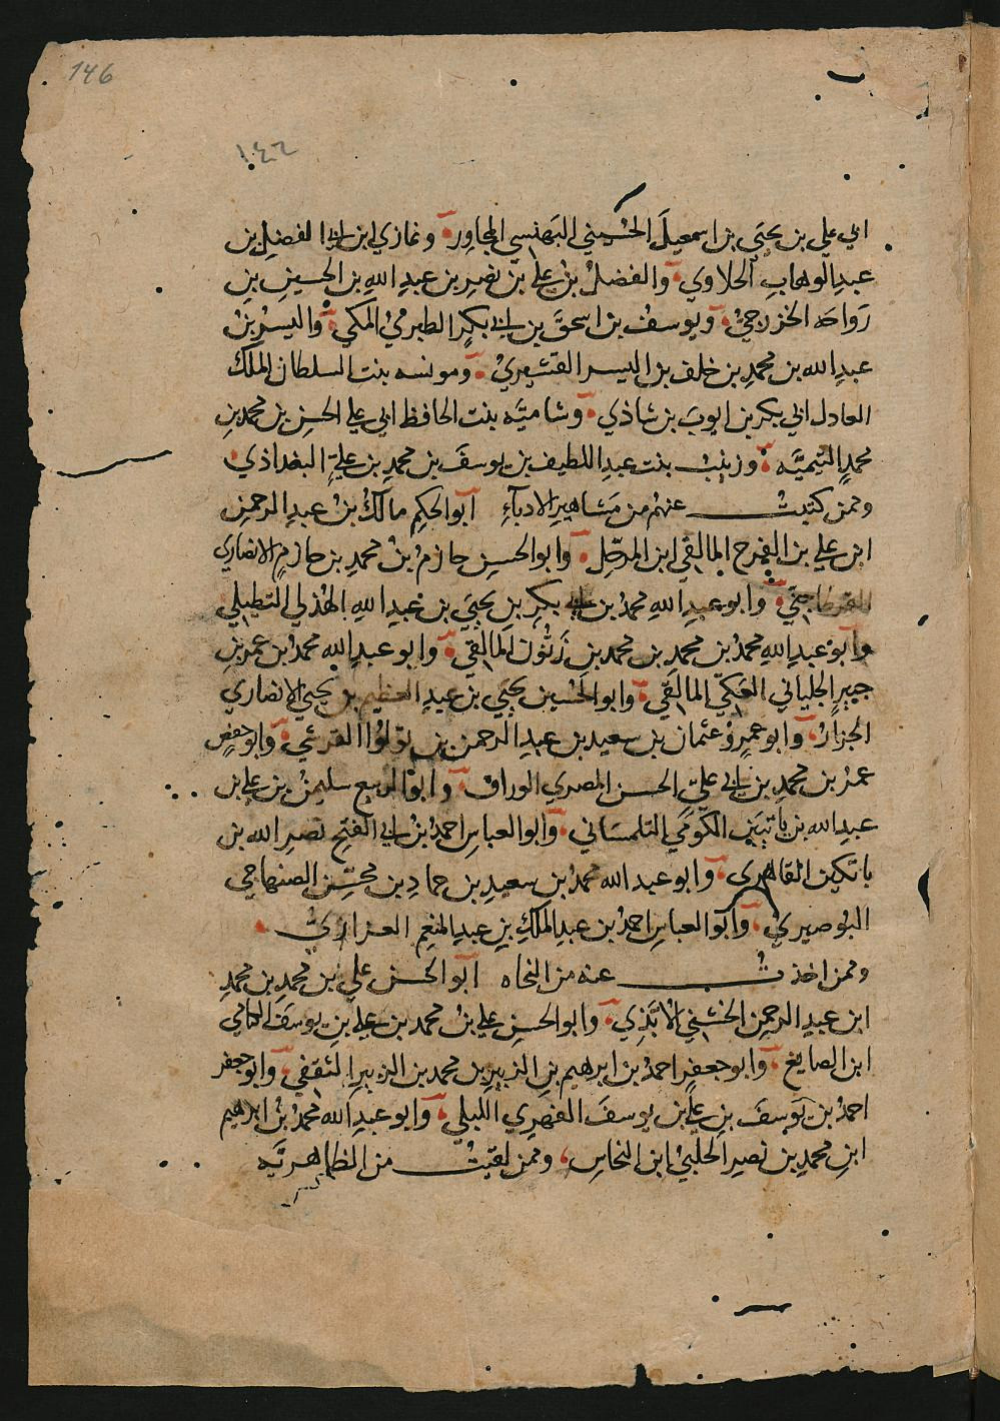 146
١٤٦
ابي علي بن يحيى بن اسمعيلَ الحُسَيني البَهنسي المجاوِر، وغازي ابن ابي الفضلِ بن
عبدِ الوهابِ الحلاوي، والفضلُ بنُ علي بن نصيرِ بن عبدِ اللهِ بن الحسينِ بنِ
رَواحَه الخزرجيُّ، ويوسفُ بن اسحقَ بن ابي بكرٍ الطبريُّ المكي، واليُسرُ بنُ
عبدِ الله بن محمدِ بن خلف بن اليسر القشيريُّ، ومونسه بنت السلطان الملك
العادل ابي بكر بن ايوبَ بن شاذي، وشاميَّه بنت الحافظ ابي علي الحسنِ بن محمدِ بنِ
محمدٍ التيميَّه، وزينبُ بنت عبدِ اللطيف بن يوسفَ بن محمدِ بن عليٍّ البغداذي
وممن كتبتُ عنهم من مَشاهيرِ الادبآءِ ابو الحكمِ مالكُ بنُ عبدِ الرحمنِ
ابن علي بن الفرج المالقي ابن المرحّل، وابو الحسنِ حازمُ بنُ محمدِ بن حازمٍ الانصاري
القرطاجنّي، وابو عبدِ اللهِ محمدُ بن ابي بكرِ بن يحيى بن عبدِ اللهِ الهُذلي التُطيلي
وابو عبدِ اللهِ محمدُ بنُ محمدِ بن محمدِ بن زَنُّون المالقي، وابو عبدِ الله محمدُ بن عمرَ بنِ
جبيرٍ الجلياني العَكّي المالَقي، وابو الحُسين يحيى بن عبدِ العظيم بن يحيى الانصاري
الجزارُ، وابو عمرٍو عثمان بن سعيد بن عبد الرحمن بن تولُوا القرشي، وابو حفصٍ
عمرُ بن محمدِ بن ابي عليّ الحسن المصري الوراق، وابو الربيع سليمنُ بن علي بن
عبدِ الله بن ياتيتن الكومي التلمسَاني، وابو العباس احمدُ بنُ ابي الفتح نصرِ الله بن
باتكين القاهري، وابو عبد الله محمدُ بن سعيدِ بن حمادِ بن محسِن الصنهاجي
البُوصيريُّ، وابو العباسِ احمدُ بن عبدِ الملكِ بن عبدِ المنعم العزازيُّ
وممن اخذتُ عنه من النحاه ابو الحسن علي بن محمدِ بن محمدِ
ابن عبدِ الرحمنِ الخشني الأُبَّذي، وابو الحسنِ علي بنُ محمد بن علي بن يوسفَ الكتامي
ابن الصايغ، وابو جعفرٍ احمدُ بن ابرهيم بنِ الزبيرِ بن محمد بن الزبيرِ الثقفي، وابو جعفر
احمدُ بن يُوسفَ بنِ علي بن يوسفَ الفِهري اللبلي، وابو عبدِ الله محمدُ بنُ ابرهيم
ابنِ محمدِ بن نصرٍ الحلبيُّ ابن النحاسِ، وممن لقيتُ من الظاهريَّه